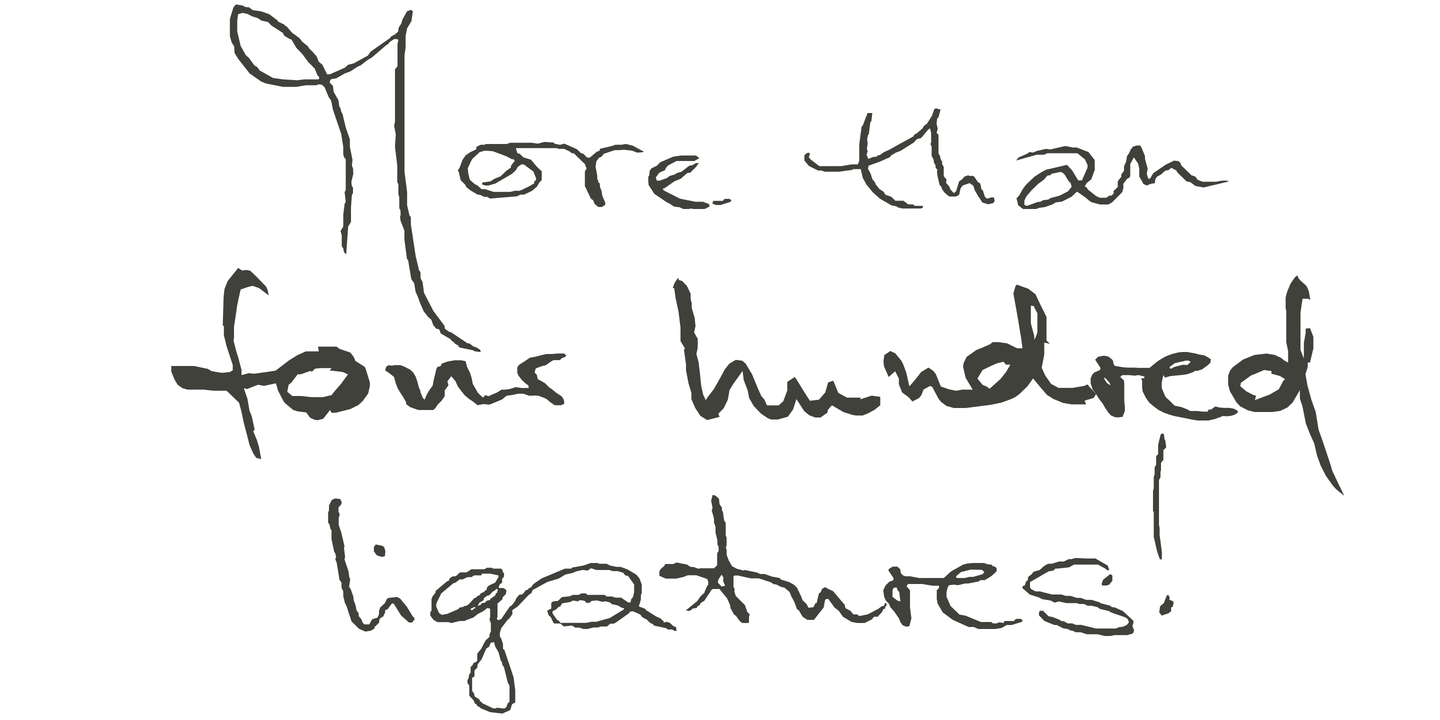 More than
four hundred
ligatures!